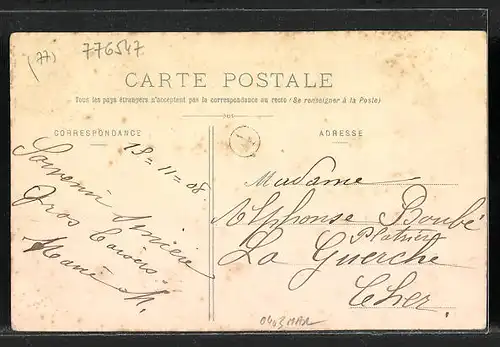 (77)
776547
CARTE POSTALE
Tous les pays étrangers n'acceptent pas la correspondance au recto (Se renseigner à la Poste)
CORRESPONDANCE
ADRESSE
18=11=08
Souvenir Sincère
Gros baisers
Marie M.
Madame
Alphonse Boubé
Platrier
La Guerche
Cher.